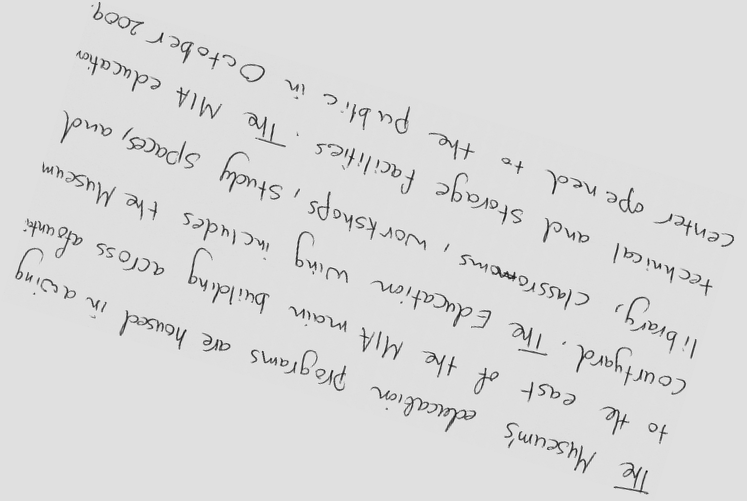 The Museum's education programs are housed in a wing
to the east of the MIA main building across a founta
courtyard. The Education wing includes the Museum
library, classrooms, workshops, study spaces, and
technical and storage facilities. The MIA education
center opened to the public in October 2009.